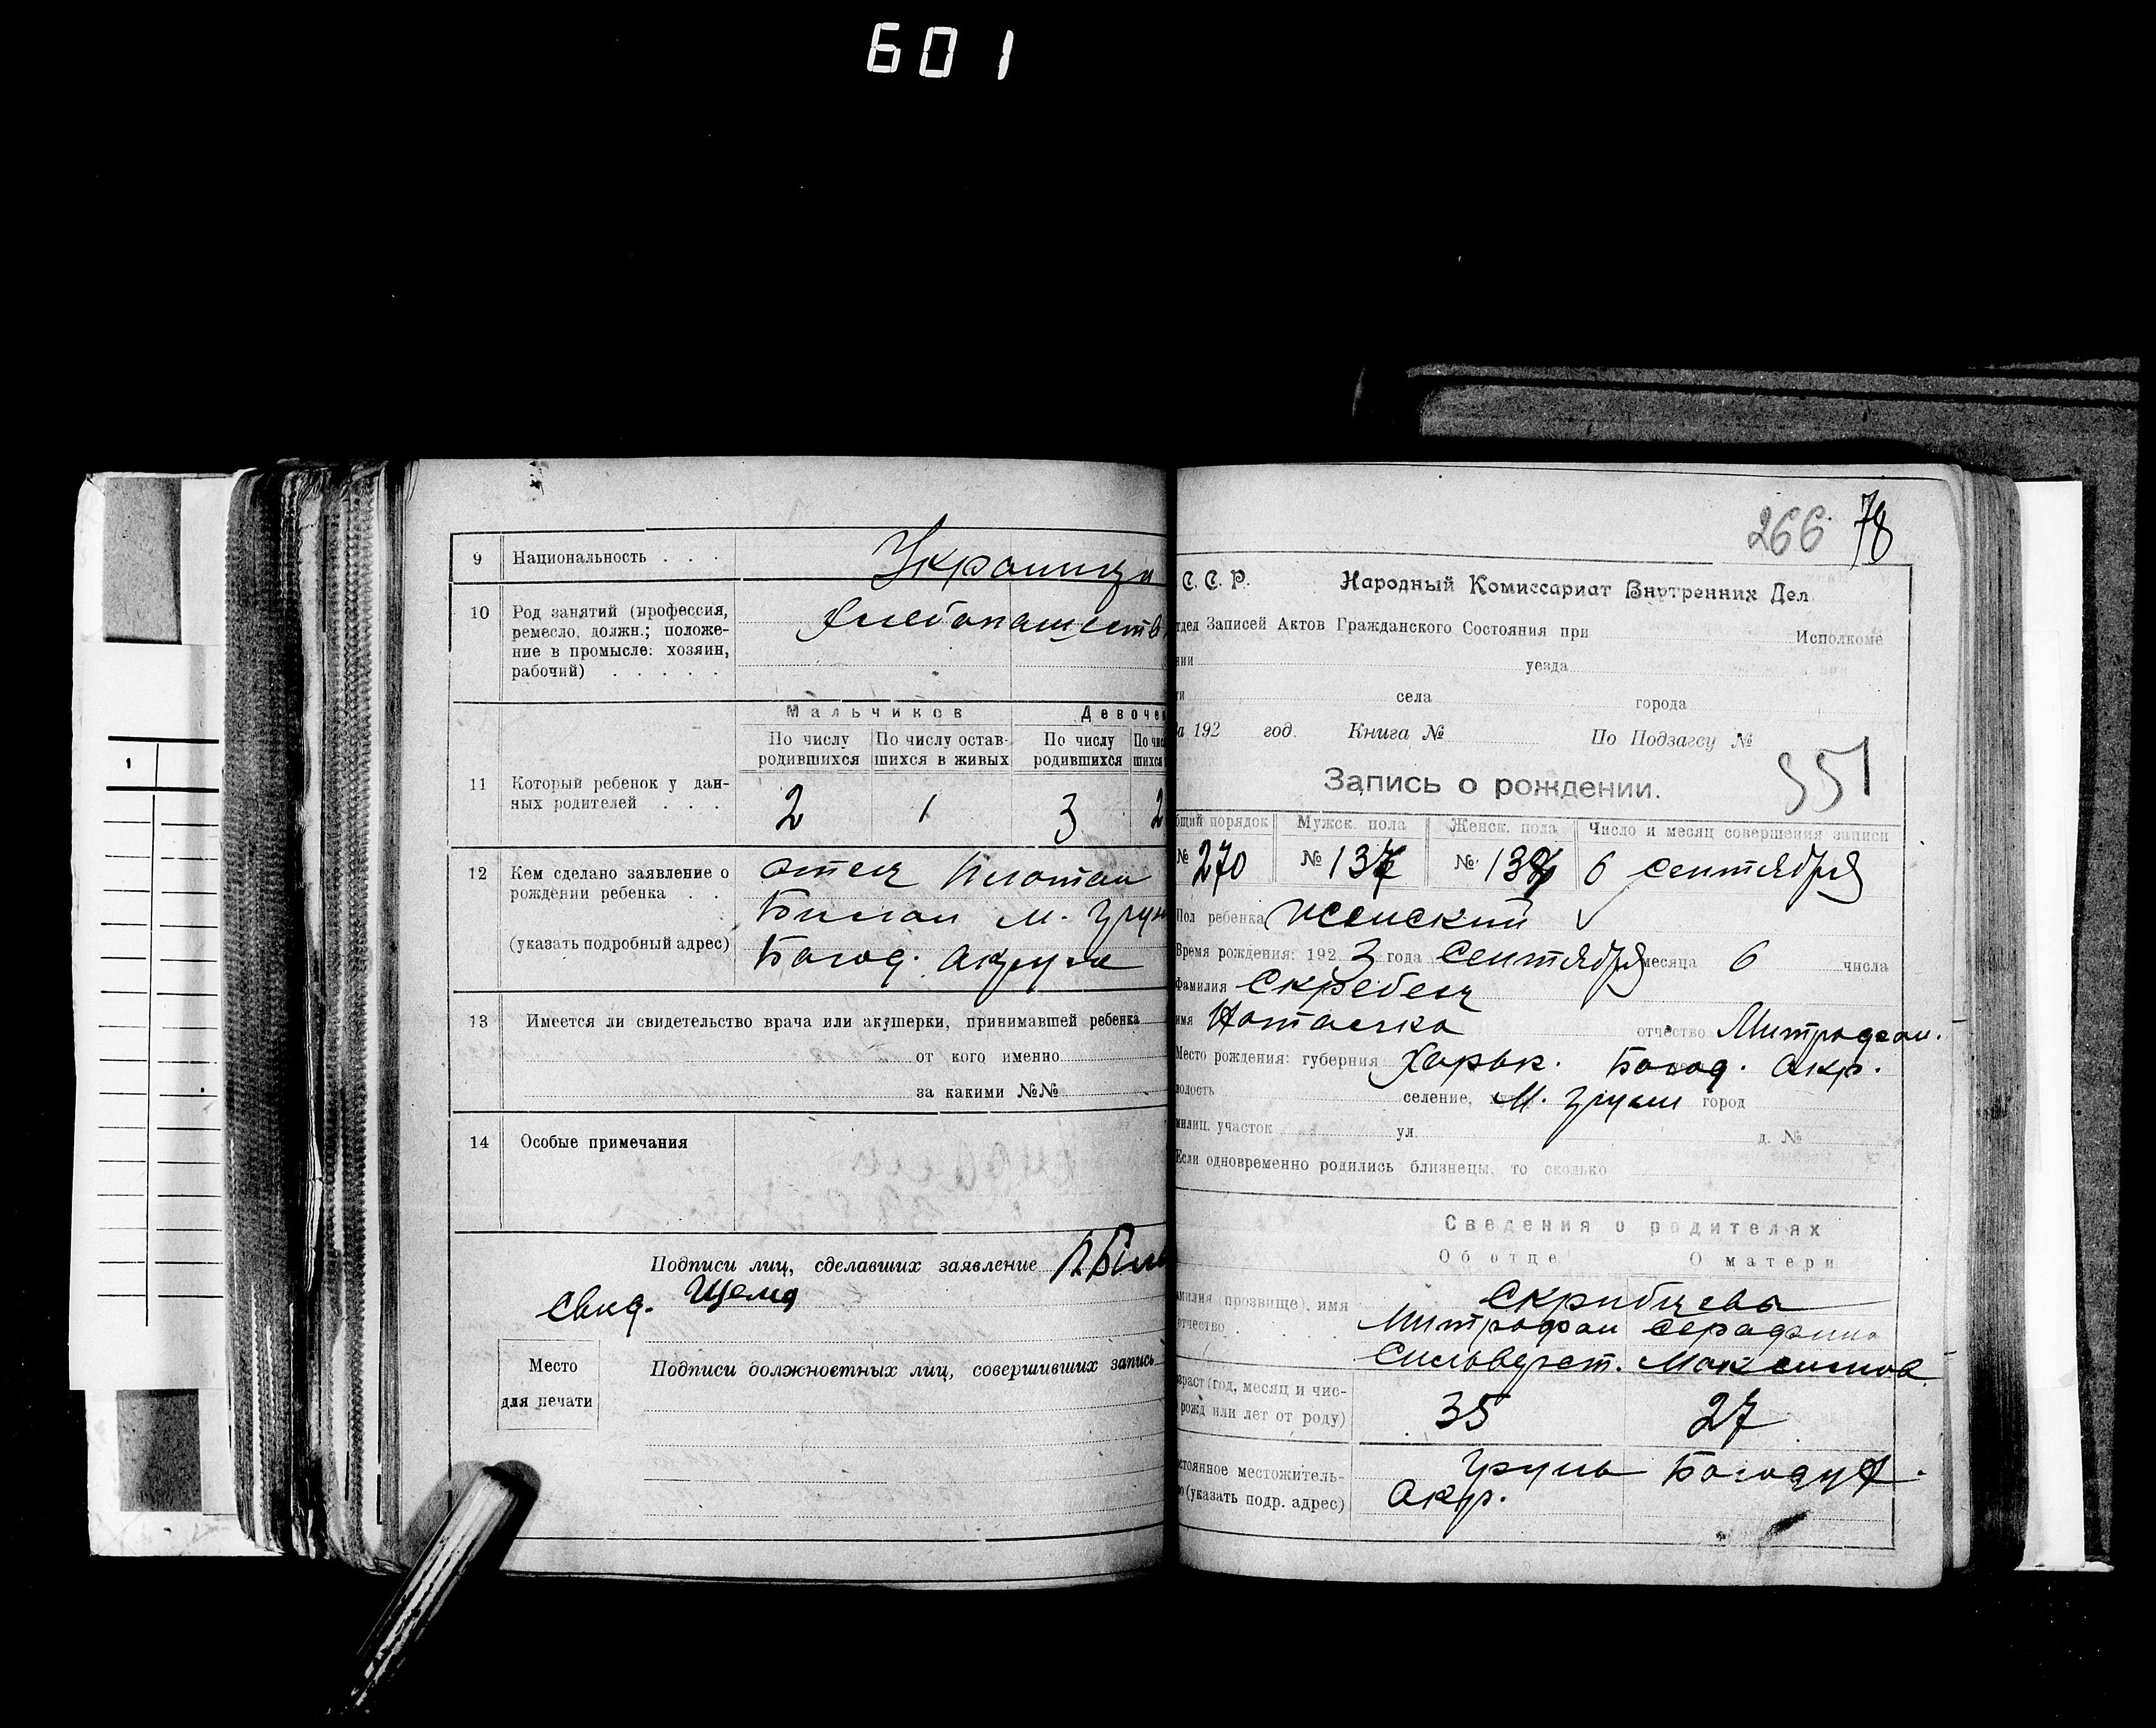 601
9 Национальность . . . Украинцы
10 Род занятий (профессия,
ремесло, должн.; положе-
ние в промысле: хозяин,
рабочий) . . . . .
Хлебопашеств
Мальчиков Девочек
По числу родившихся По числу остав-шихся в живых По числу родившихся По чис шихся
11 Который ребенок у дан-
ных родителей . . .
2 1 3 2
12 Кем сделано заявление о
рождении ребенка . .
(указать подробный адрес)
отец Платон
Билан М. Грун
Богод. Округа
13 Имеется ли свидетельство врача или акушерки, принимавшей ребенка
от кого именно
за какими №№
14 Особые примечания
Подписи лиц, сделавших заявление П. Біл
Свид.
Место
для печати
Подписи должностных лиц, совершивших запись
266 78
С. С. Р. Народный Комиссариат Внутренних Дел
тдел Записей Актов Гражданского Состояния при Исполкоме
нии уезда
ти села города
а 192 год. Книга № По Подзагсу №
351
Запись о рождении.
бщий порядок Мужск. пола Женск. пола Число и месяц совершения записи
№ 270 № 137 № 6 сентября
Пол ребенка Женский
Время рождения: 192 3 года Сентября месяца 6 числа
Фамилия Скребец
имя Наталка отчество Митрофан.
Место рождения: губерния Харьк. Богод. Окр.
волость селение, М. Груни город
милиц. участок ул. д. №
Если одновременно родились близнецы, то сколько
Сведения о родителях
Об отце О матери
амилия (прозвище), имя
отчество . . .
Скрибцева
Митрофан Серафима
Сильверст. Максимов.
зраст (год, месяц и чис-
рожд или лет от роду)
35 27
стоянное местожитель-
о (указать подр. адрес)
Грунь Богодух.
Окр.
1